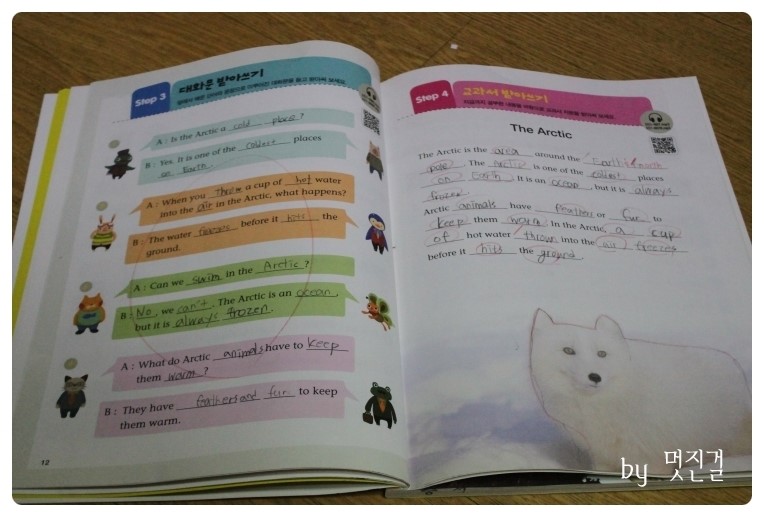 Step 3 대화문 받아쓰기
A : Is the Arctic a cold place?
B : Yes. It is one of the coldest places
on Earth.
A : When you throw a cup of hot water
into the air in the Arctic, what happens?
B : The water freezes before it hits the
ground.
A : Can we swim in the Arctic?
B : No, we can't. The Arctic is an ocean,
but it is always frozen.
A : What do Arctic animals have to keep
them warm?
B : They have feathers and fur to keep
them warm.
12
Step 4 교과서 받아쓰기
The Arctic
The Arctic is the area around the North
pole. The Arctic is one of the coldest places
on Earth. It is an ocean, but it is always
frozen.
Arctic animals have feathers or fur to
keep them warm. In the Arctic, a cup
of hot water thrown into the air freezes
before it hits the ground.
by 멋진걸